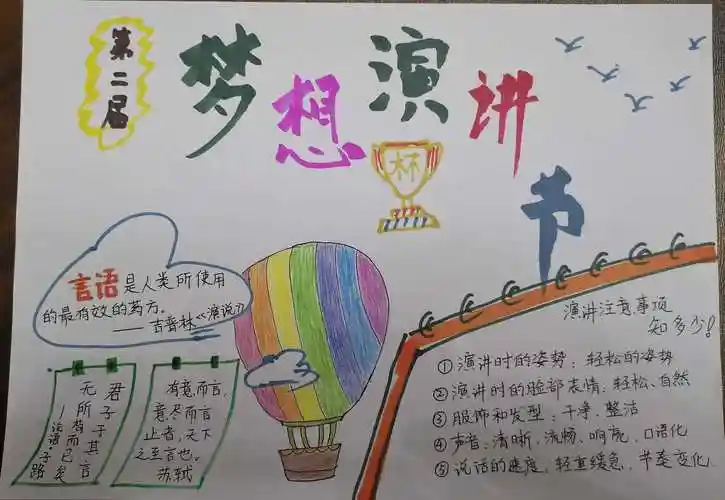 第二届
梦想演讲
杯
节
言语是人类所使用
的最有效的药方。
——吉普林《演说》
君子于其言
无所苟而已矣
—论语·子路
有意而言,
意尽而言
止者,天下
之至言也。
苏轼
演讲注意事项
知多少!
①演讲时的姿势:轻松的姿势
②演讲时的脸部表情:轻松、自然
③服饰和发型:干净、整洁
④声音:清晰、流畅、响亮、口语化
⑤说话的速度,轻重缓急,节奏变化